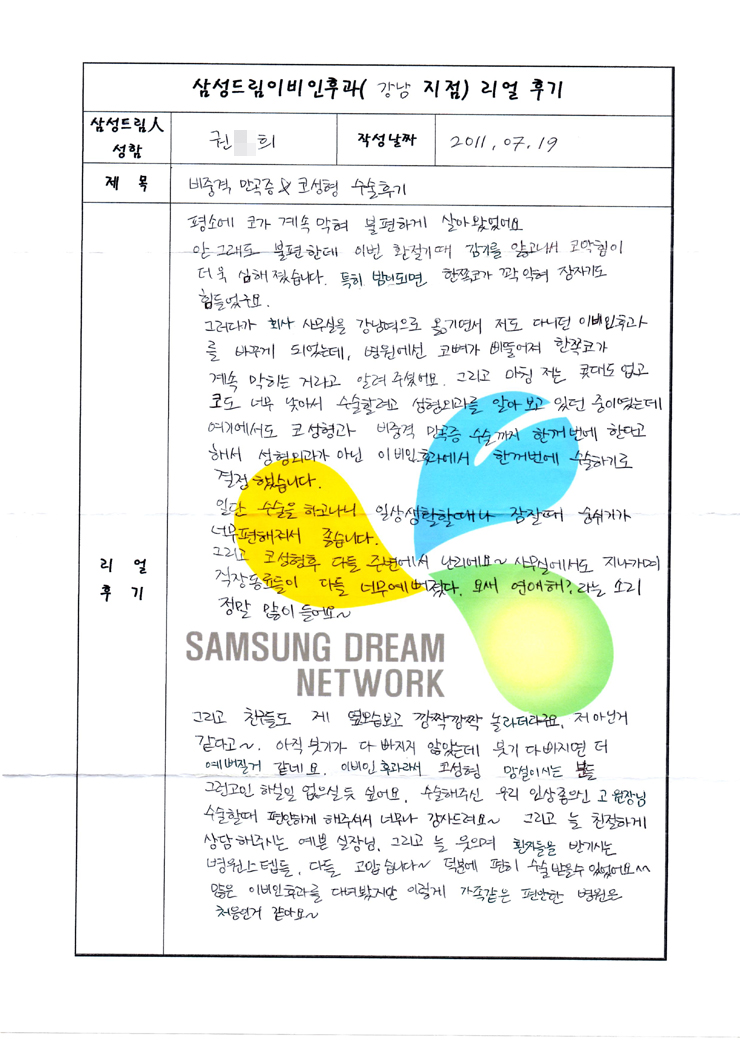 삼성드림이비인후과( 강남 지점) 리얼 후기
삼성드림人
성함
권 희
작성날짜
2011, 07.19
제 목
비중격 만곡증 & 코성형 수술후기
평소에 코가 계속 막혀 불편하게 살아왔었어요
안 그래도 불편한데 이번 환절기때 감기를 앓고나서 코막힘이
더욱 심해졌습니다. 특히 밤이되면 한쪽코가 꽉 막혀 잠자기도
힘들었구요.
그러다가 회사 사무실을 강남역으로 옮기면서 저도 다니던 이비인후과
를 바꾸게 되었는데, 병원에선 코뼈가 삐뚤어져 한쪽코가
계속 막히는 거라고 알려 주셨어요. 그리고 마침 저는 콧대도 없고
코도 너무 낮아서 수술할려고 성형외과를 알아 보고 있던 중이였는데
여기에서도 코성형과 비중격 만곡증 수술까지 한꺼번에 한다고
해서 성형외과가 아닌 이비인후과에서 한꺼번에 수술하기로
결정했습니다.
일단 수술을 하고나니 일상생활할때나 잠잘때 숨쉬기가
너무편해져서 좋습니다.
그리고 코성형후 다들 주변에서 난리에요~ 사무실에서도 지나가며
직장동료들이 다들 너무예뻐졌다. 요새 연애해? 라는 소리
정말 많이 들어요~
SAMSUNG DREAM
NETWORK
리 얼
후 기
그리고 친구들도 제 옆모습보고 깜짝깜짝 놀라더라구요. 저 아닌거
같다고~. 아직 붓기가 다 빠지지 않았는데 붓기 다빠지면 더
예뻐질거 같네요. 이비인후과라서 코성형 망설이시는 분들
그런고민 하실일 없으실듯 싶어요. 수술해주신 우리 인상좋으신 고 원장님
수술할때 편안하게 해주셔서 너무나 감사드려요~ 그리고 늘 친절하게
상담해주시는 예쁜 실장님, 그리고 늘 웃으며 환자들을 반기시는
병원스텝들, 다들 고맙습니다~ 덕분에 편히 수술받을수 있었어요^^
많은 이비인후과를 다녀봤지만 이렇게 가족같은 편안한 병원은
처음인거 같아요~